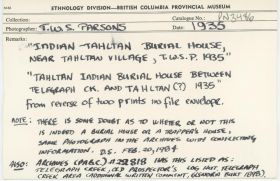 ETHNOLOGY DIVISION—BRITISH COLUMBIA PROVINCIAL MUSEUM
Catalogue No.: PN3486
Photographer: T.W.S. PARSONS 1935
Remarks:
"INDIAN-TAHLTAN BURIAL HOUSE,
NEAR TAHLTAN VILLAGE, T.W.S.P. 1935"
"TAHLTAN INDIAN BURIAL HOUSE BETWEEN
TELEGRAPH CK. AND TAHLTAN (?) 1935"
From reverse of two prints in file envelope.
NOTE: THERE IS SOME DOUBT AS TO WHETHER OR NOT THIS
IS INDEED A BURIAL HOUSE OR A TRAPPER'S HOUSE,
SAME PHOTOGRAPH IN THE ARCHIVES WITH CONFLICTING
INFORMATION. D.S. FEB. 20, 1984
ALSO: ARCHIVES (PABC) # HAS THIS LISTED AS:
TELEGRAPH CREEK, OLD PROSPECTOR'S LOG HUT, TELEGRAPH
CREEK AREA (ADDITIONAL WRITTEN COMMENT,